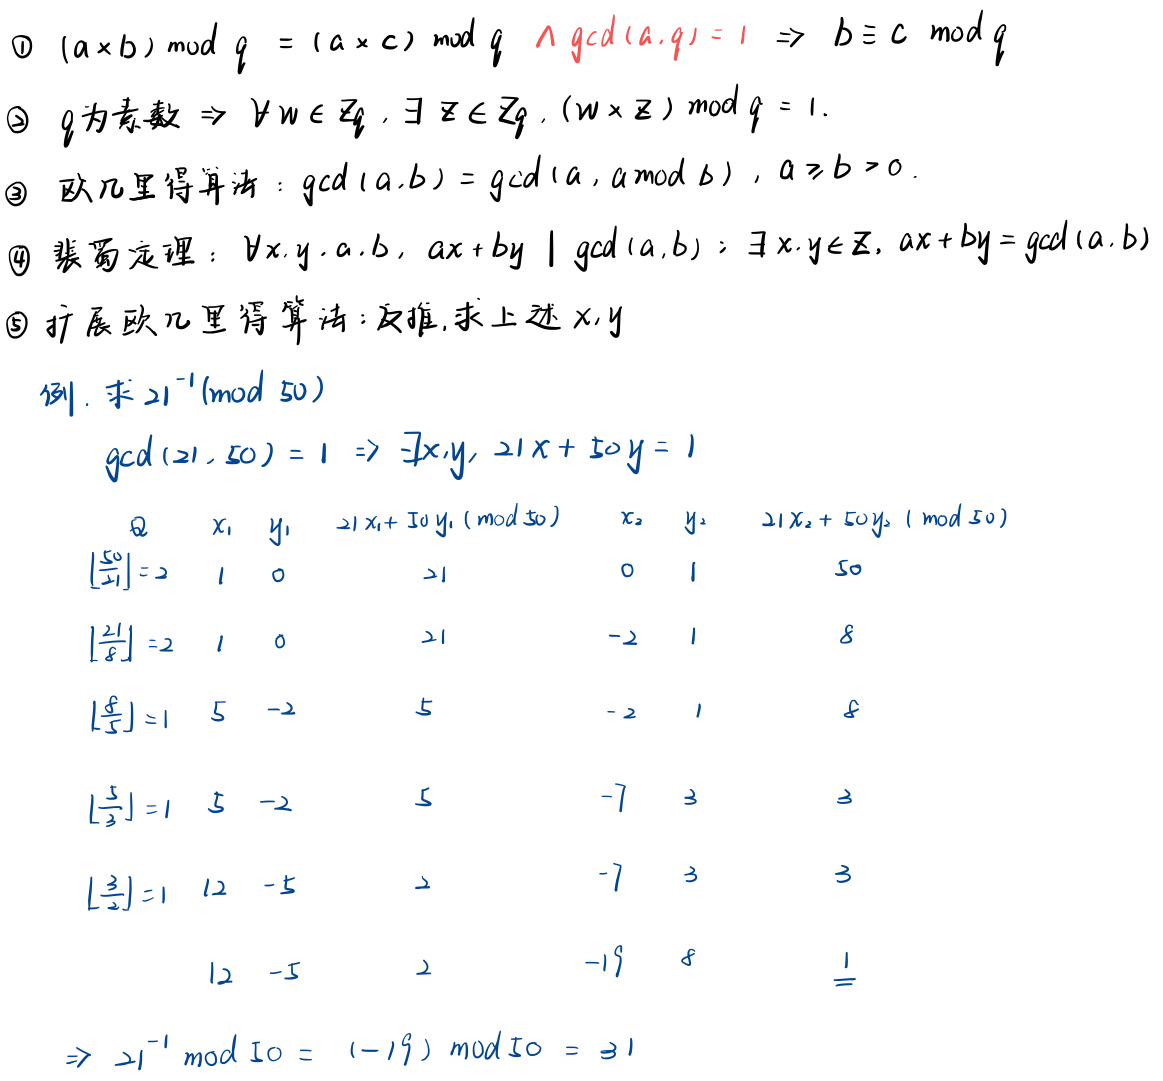 ① (a×b) mod q = (a×c) mod q ∧ gcd(a,q)=1 ⇒ b≡c mod q
② q为素数 ⇒ ∀w∈Zq, ∃z∈Zq, (w×z) mod q = 1.
③ 欧几里得算法: gcd(a,b) = gcd(a, a mod b), a≥b>0.
④ 裴蜀定理: ∀x,y,a,b, ax+by | gcd(a,b); ∃x,y∈Z, ax+by=gcd(a,b)
⑤ 扩展欧几里得算法:反推,求上述x,y
例. 求21⁻¹(mod 50)
gcd(21,50) = 1 ⇒ ∃x,y, 21x+50y=1
Q x₁ y₁ 21x₁+50y₁ (mod 50) x₂ y₂ 21x₂+50y₂ (mod 50)
⌊50/21⌋=2 1 0 21 0 1 50
⌊21/8⌋=2 1 0 21 -2 1 8
⌊8/5⌋=1 5 -2 5 -2 1 8
⌊5/3⌋=1 5 -2 5 -7 3 3
⌊3/2⌋=1 12 -5 2 -7 3 3
12 -5 2 -19 8 1
⇒ 21⁻¹ mod 50 = (-19) mod 50 = 31